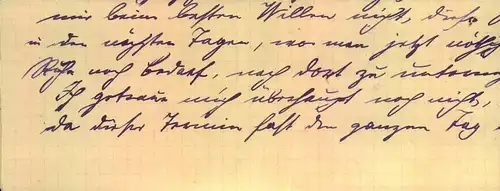 mir beim besten Willen nicht, diese
in den nächsten Tagen, wo man jetzt nötig
Ruhe noch bedarf, nach dort zu unterneh
Ich getraue mich überhaupt noch nicht,
da dieser Termin fast den ganzen Tag